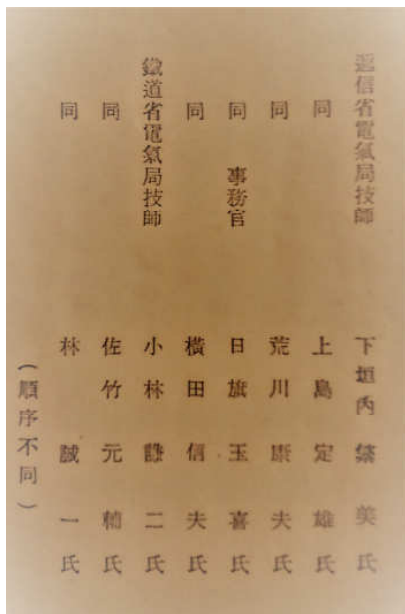 遞信省電氣局技師 下垣內 美氏
同 上島定雄氏
同 荒川康夫氏
同 事務官 日旗玉喜氏
同 橫田信夫氏
鐵道省電氣局技師 小林 二氏
同 佐竹元輔氏
同 林誠一氏
(順序不同)